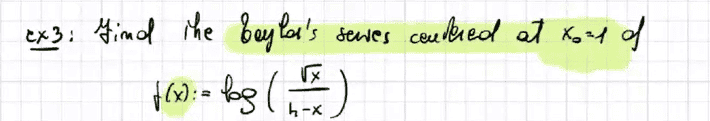 ex3: Find the Taylor's series centered at x₀=1 of
f(x):= log(√x / 4-x)